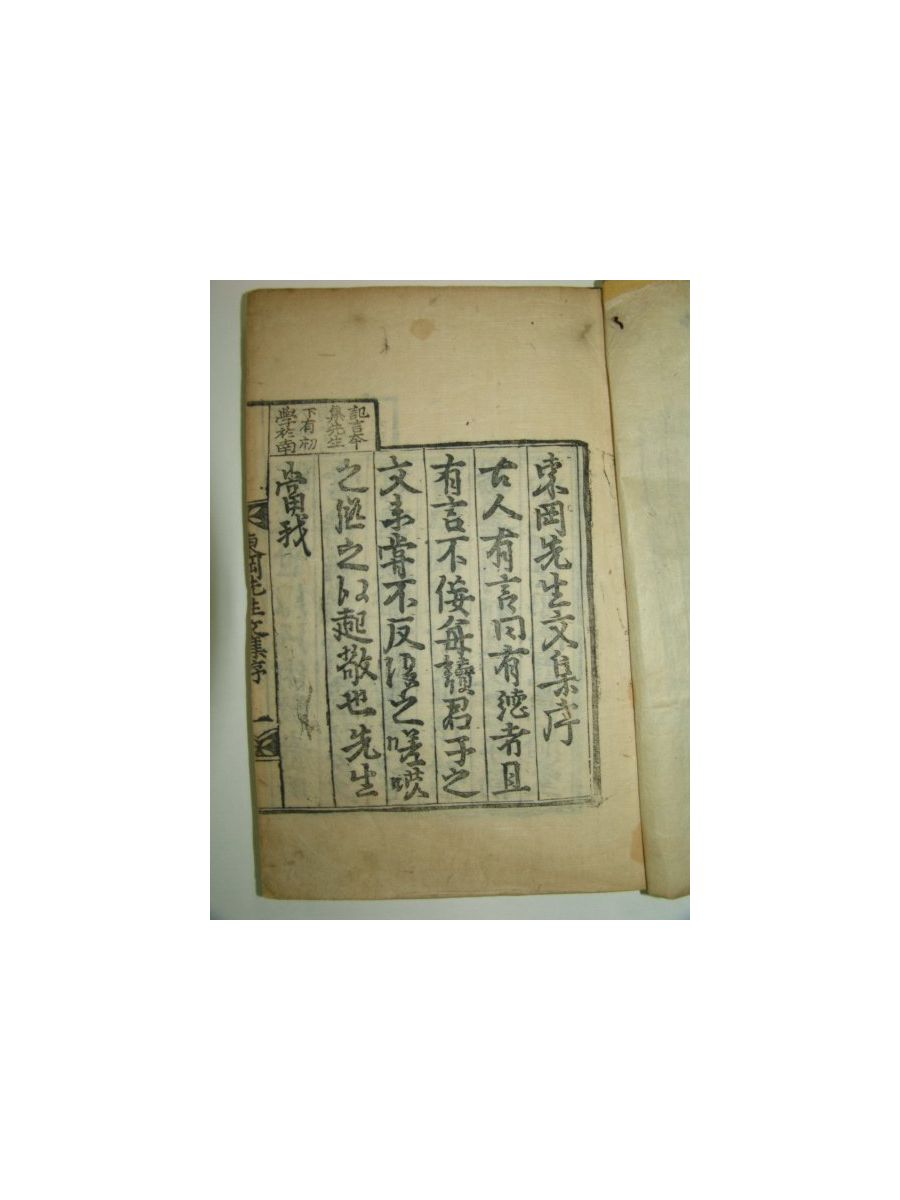 東岡先生文集序
古人有言曰有德者且
有言不佞每讀君子之
文未嘗不反復之嗟嘆
之繼之以起敬也先生
當我
記言本
集先生
下有初
學於南
東岡先生文集序 一